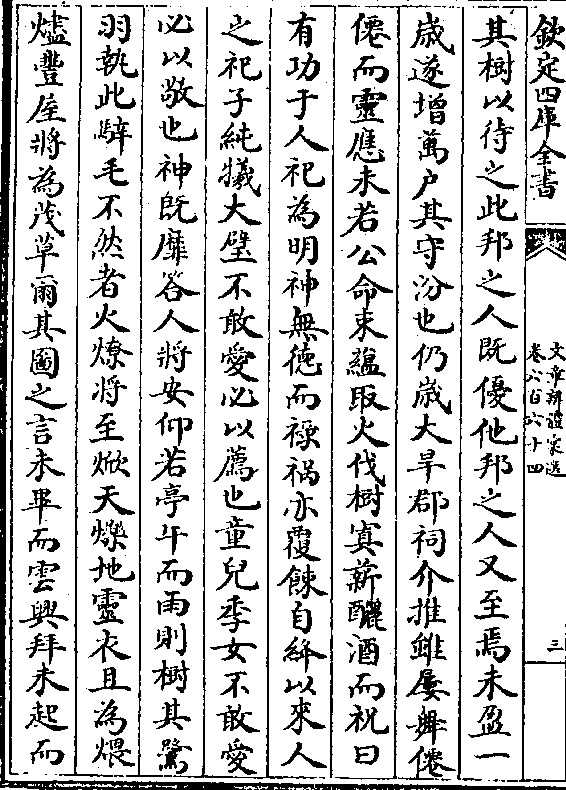 欽定四庫全書
文章辨體彙選
卷六百六十四
三
其樹以待之此邦之人既優他邦之人又至焉未盈一
歲遂增萬户其守汾也仍歲大旱郡祠介推雖屢舞僊
僊而靈應未若公命束緼取火伐樹寘薪釃酒而祝曰
有功于人祀為明神無徳而祿禍亦覆餗自絳以來人
之祀子純犧大壁不敢愛必以薦也童兒季女不敢愛
必以敬也神既靡答人將安仰若亭午而雨則樹其鷺
羽執此騂毛不然者火燎將至焮天爍地靈衣且為煨
燼豐屋將為茂草爾其圖之言未畢而雲興拜未起而